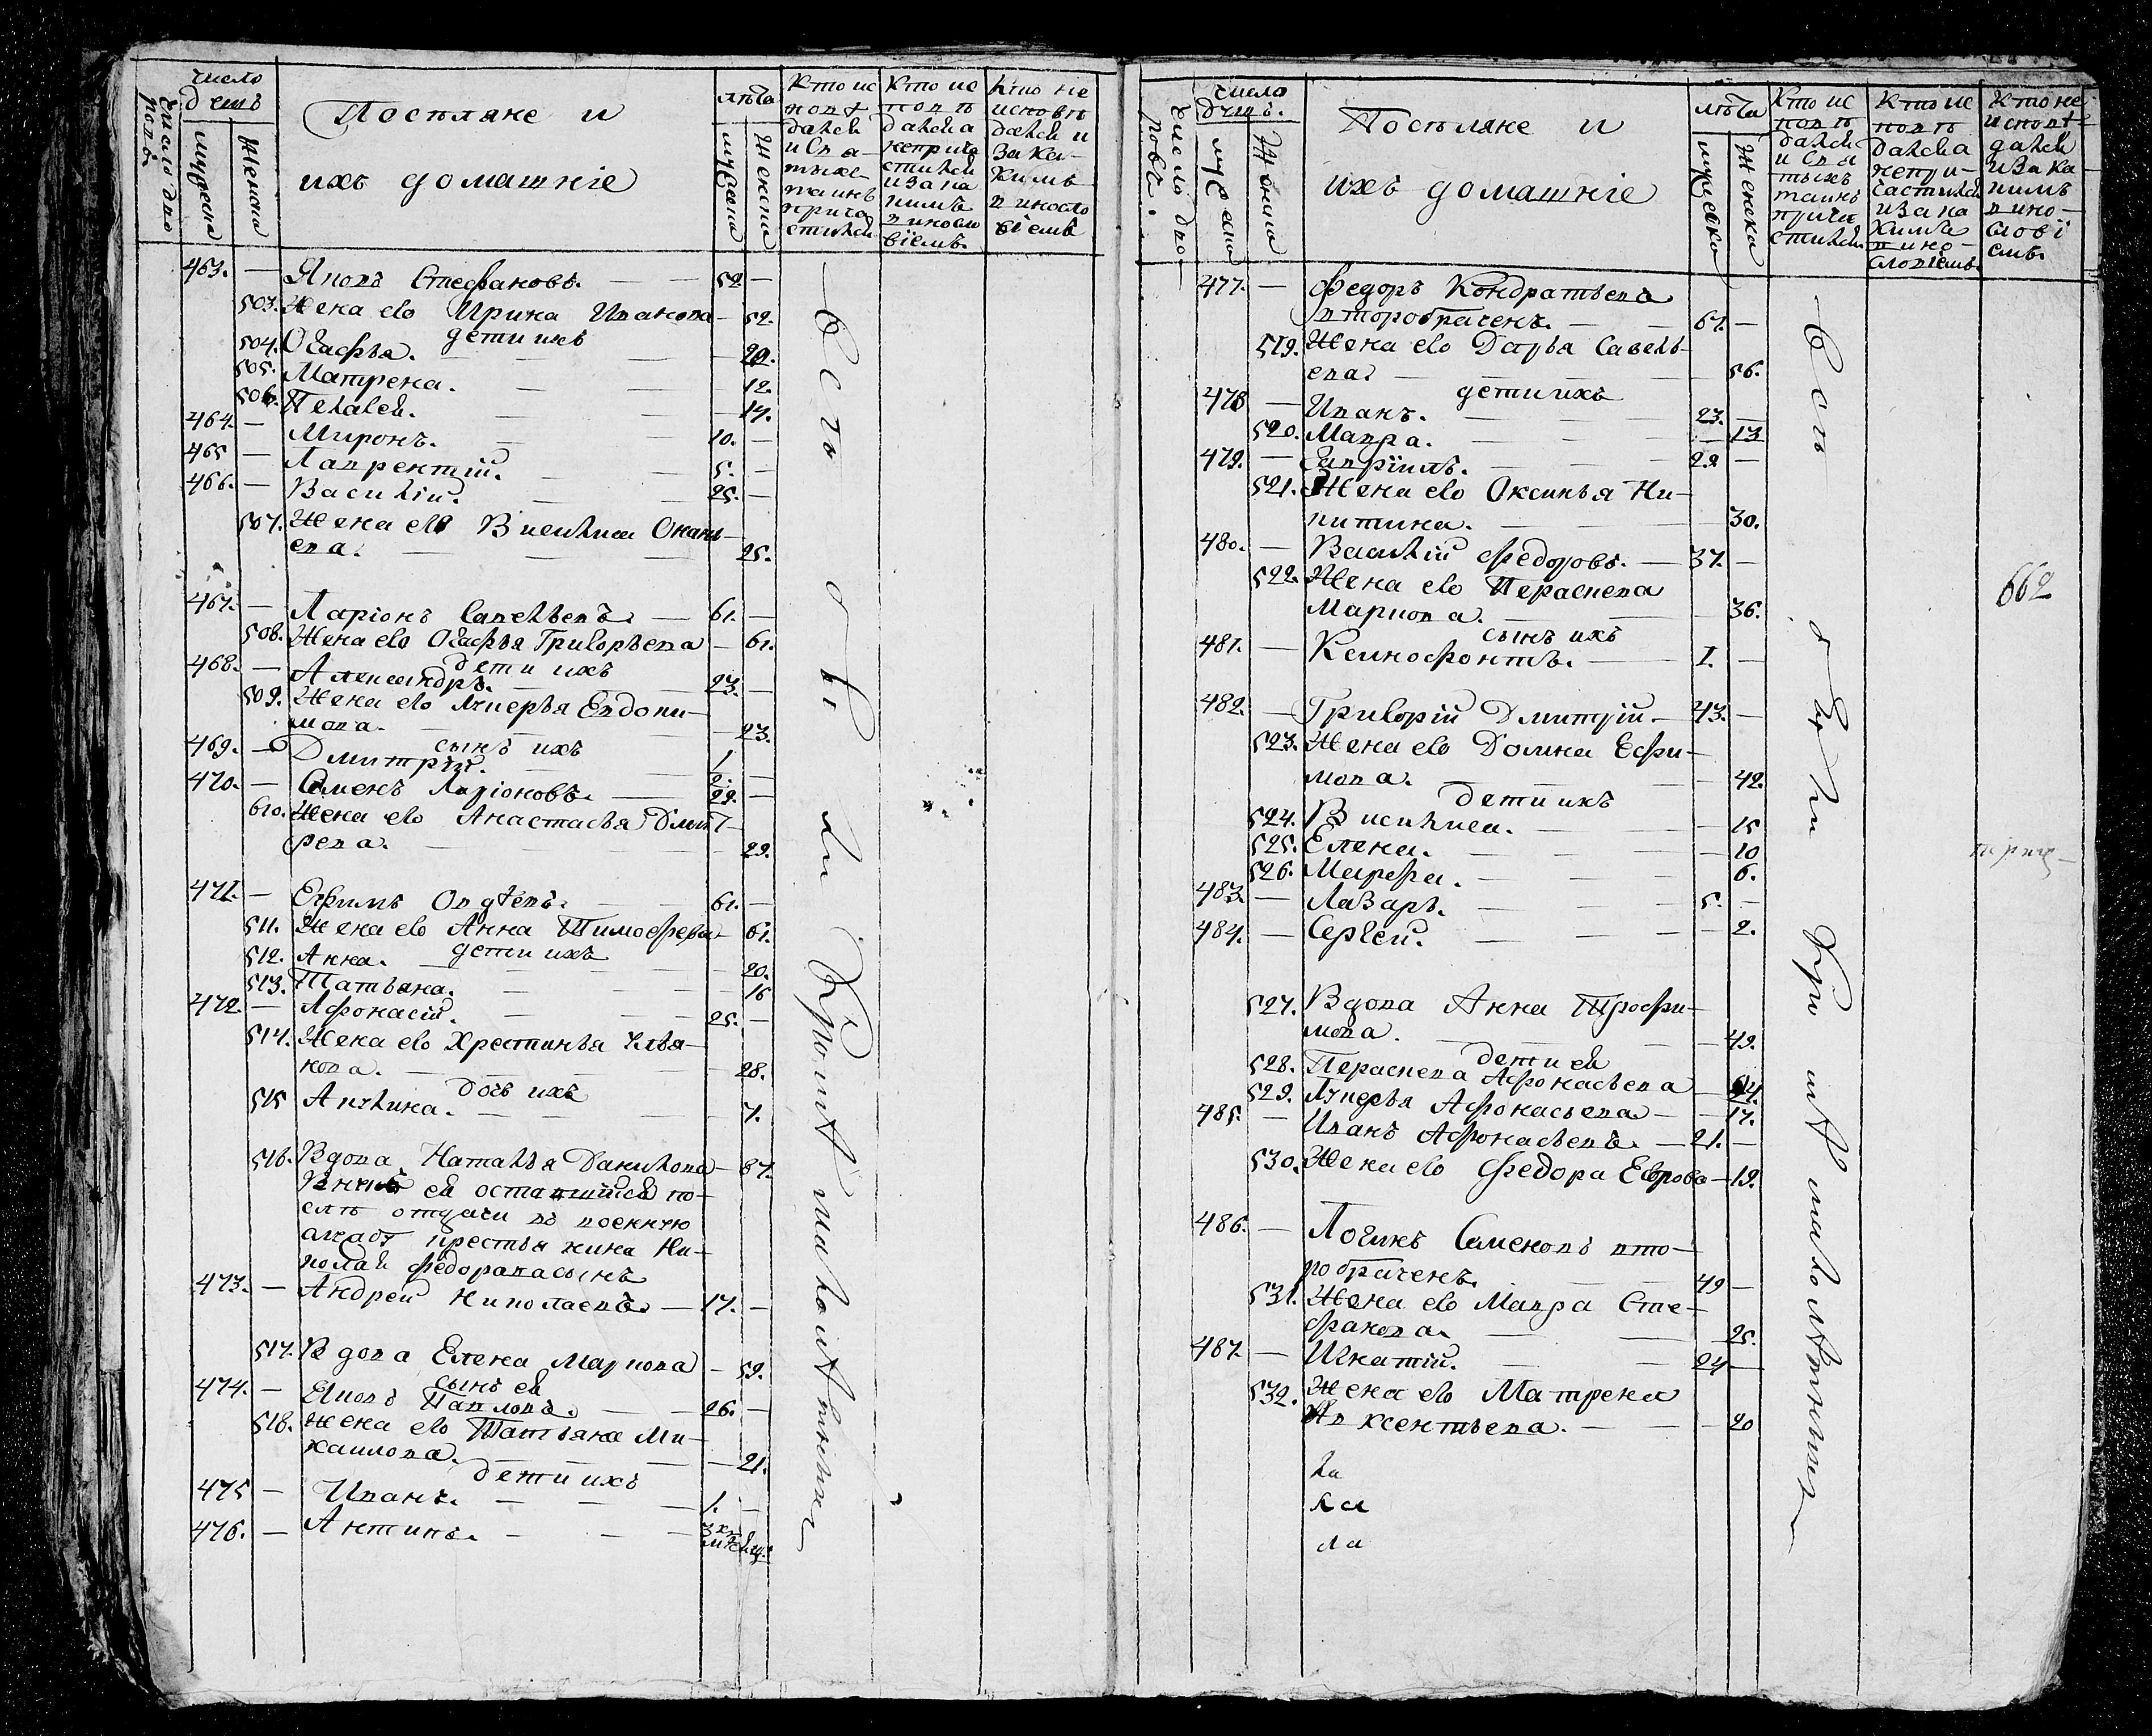 число
душъ
лѣта
Число дво
ровъ.
мужеска
Женска
Посѣляне и
ихъ домашніе
мужеска
Женска
Кто ис
повѣ
дался
и свя
тыхъ
таинъ
прича
стился
Кто ис
повѣ
дался а
неприча
стился
и за ка
кимъ
виносло
віемъ.
Кто не
исповѣ
дался и
за ка-
кимъ
виносло
віемъ
463. — Яковъ Стефановъ. — — 52 —
503. Жена его Ирина Иванова — 52.
дети ихъ
504. Огафья. — — 20.
505. Матрена. — — 12.
506. Пелагея. — — 14.
464. — Миронъ. — 10. —
465 — Лаврентій. — 5. —
466. — Василій. — 25. —
507. Жена его Василиса Онань-
ева. — — 25.
467. — Ларіонъ Савельевъ — 61. —
508. Жена его Огафья Григорьева — 61.
дети ихъ
468. — Александръ. — 23. —
509. Жена его Лукерья Евдоки-
мова. — — 23.
сынъ ихъ
469. — Дмитрій. — 1
470. — Семенъ Ларіоновъ. — 29. —
510. Жена его Анастасья Дмит-
рева. — — 29.
471. — Ефимъ Овдѣевъ. — 61. —
511. Жена его Анна Тимофева — 61.
дети ихъ
512. Анна. — — 20.
513. Татьяна. — — 16
472 — Афонасій. — 25. —
514. Жена его Хрестинья Улья-
нова. — — 28.
дочь ихъ
515 Акулина. — — 7.
516. Вдова Наталья Данилова — 67.
Внукъ ея оставшійся по-
слѣ отдачи въ военную
службу крестьянина Ни-
колая Федорова сынъ
473. — Андрей Николаевъ. — 17. —
517. Вдова Елена Маркова — 59.
сынъ ея
474. — Павловъ. — 26. —
518. Жена его Татьяна Ми-
хаилова. — — 21.
дети ихъ
475 — Иванъ. — — 1. —
476. — Антипъ. — — 3хъ
мѣсяц.
Всѣ
были
при
исповѣди
число
душъ.
лѣта
Число дво-
ровъ.
мужеска
Женска
Посѣляне и
ихъ домашніе
мужеска
Женска
Кто ис
повѣ
дался
и свя
тыхъ
таинъ
приче
стился
Кто ис
повѣ
дался а
непри-
частился
и за ка
кимъ
вино-
словіемъ.
Кто не
исповѣ-
дался
и за ка-
кимъ
вино-
слові
емъ.
477. — Федоръ Кондратьевъ
второбраченъ. — — 61. —
519. Жена его Дарья Савель-
ева. — — 56.
дети ихъ
478 — Иванъ. — 23. —
520. Мавра. — — 13
479. — Гаврїилъ. — 29 —
521. Жена его Оксинья Ни-
китина. — — 30.
480. — Василій Федоровъ. — 37. —
522. Жена его Параскева
Маркова. — — 36.
сынъ ихъ
481. — Ксинофонтъ. — 1. —
482. — Григорій Дмитрій — 43. —
523. Жена его Домна Ефи-
мова. — — 42.
дети ихъ
524. Василиса. — — 15
525. Елена. — — 10
526. Марфа. — — 6.
483. — Лазарь. — 5. —
484. — Сергей. — — 2.
527. Вдова Анна Трофи-
мова. — — 49.
дети ея
528. Параскева Афонасьева — 24.
529. Лукерья Афонасьева — 17.
485. — Иванъ Афонасьевъ. — 21. —
530. Жена его Федора Егорова — 19.
486. — Логинъ Семеновъ вто-
робраченъ. — — 49 —
531. Жена его Мавра Сте-
фанова. — — 25.
487. — Игнатій. — 24 —
532. Жена его Матрена
Авксентьева. — — 20
662